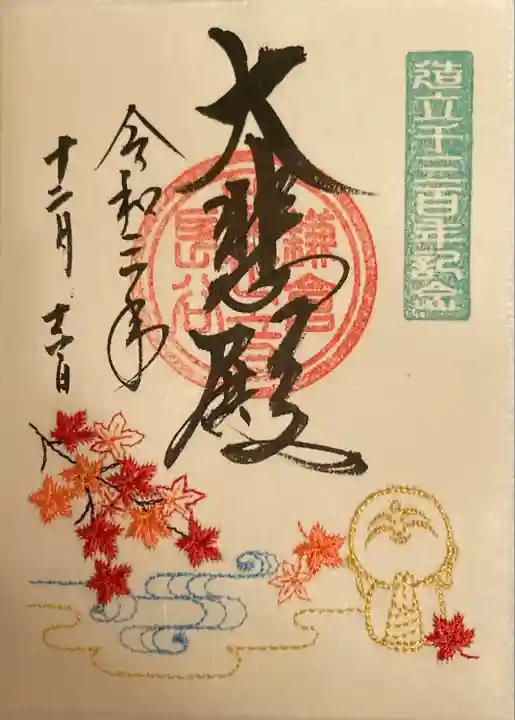 造立千三百年記念
大悲殿
鎌倉
長谷
令和三年
十二月十六日